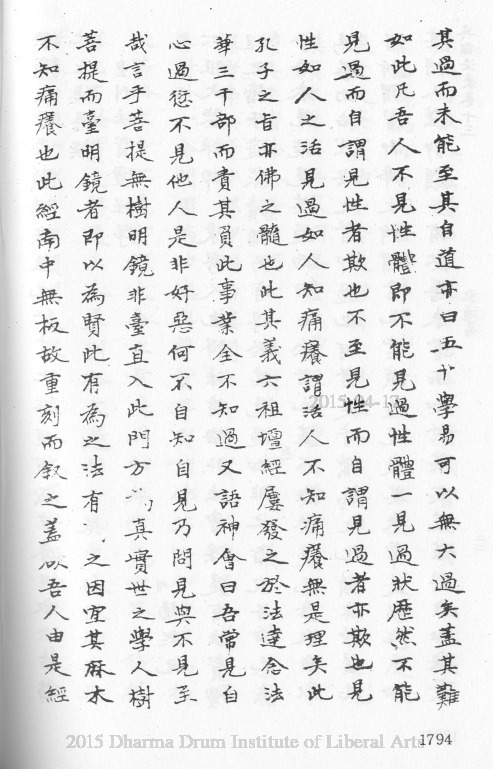 其過而未能至其自道亦曰五十學易可以無大過矣蓋其難
如此凡吾人不見性體即不能見過性體一見過狀歷然不能
見過而自謂見性者欺也不至見性而自謂見過者亦欺也見
性如人之活見過如人知痛癢謂活人不知痛癢無是理矣此
孔子之旨亦佛之髓也此其義六祖壇經屢發之於法達念法
華三千部而責其負此事業全不知過又語神會曰吾常見自
心過愆不見他人是非好惡何不自知自見乃問見與不見至
哉言乎菩提無樹明鏡非臺直入此門方 真實世之學人樹
菩提而臺明鏡者即以為賢此有為之法有 之因宜其麻木
不知痛癢也此經南中無板故重刻而叙之蓋以吾人由是經
1794
2015 Dharma Drum Institute of Liberal Arts